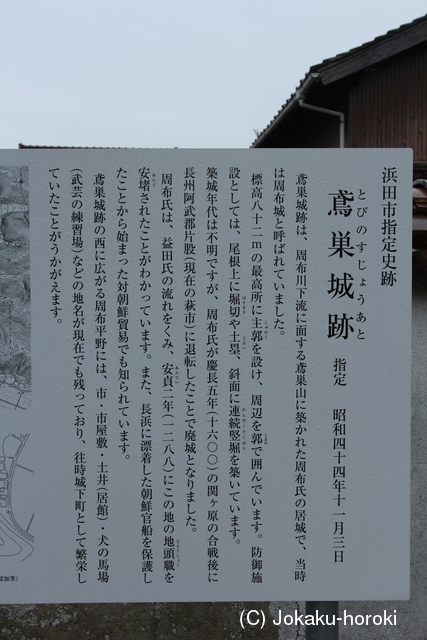 浜田市指定史跡
とびのすじょうあと
鳶巣城跡　指定　昭和四十四年十一月三日
鳶巣城跡は、周布川下流に面する鳶巣山に築かれた周布氏の居城で、当時
は周布城と呼ばれていました。
標高八十二mの最高所に主郭を設け、周辺を郭で囲んでいます。防御施
設としては、尾根上に堀切や土塁、斜面に連続竪堀を築いています。
築城年代は不明ですが、周布氏が慶長五年(十六〇〇)の関ヶ原の合戦後に
長州阿武郡片股(現在の萩市)に退転したことで廃城となりました。
周布氏は、益田氏の流れをくみ、安貞二年(一二八八)にこの地の地頭職を
安堵されたことがわかっています。また、長浜に漂着した朝鮮官船を保護し
たことから始まった対朝鮮貿易でも知られています。
鳶巣城跡の西に広がる周布平野には、市・市屋敷・土井(居館)・犬の馬場
(武芸の練習場)などの地名が現在でも残っており、往時城下町として繁栄し
ていたことがうかがえます。
(C) Jokaku-horoki